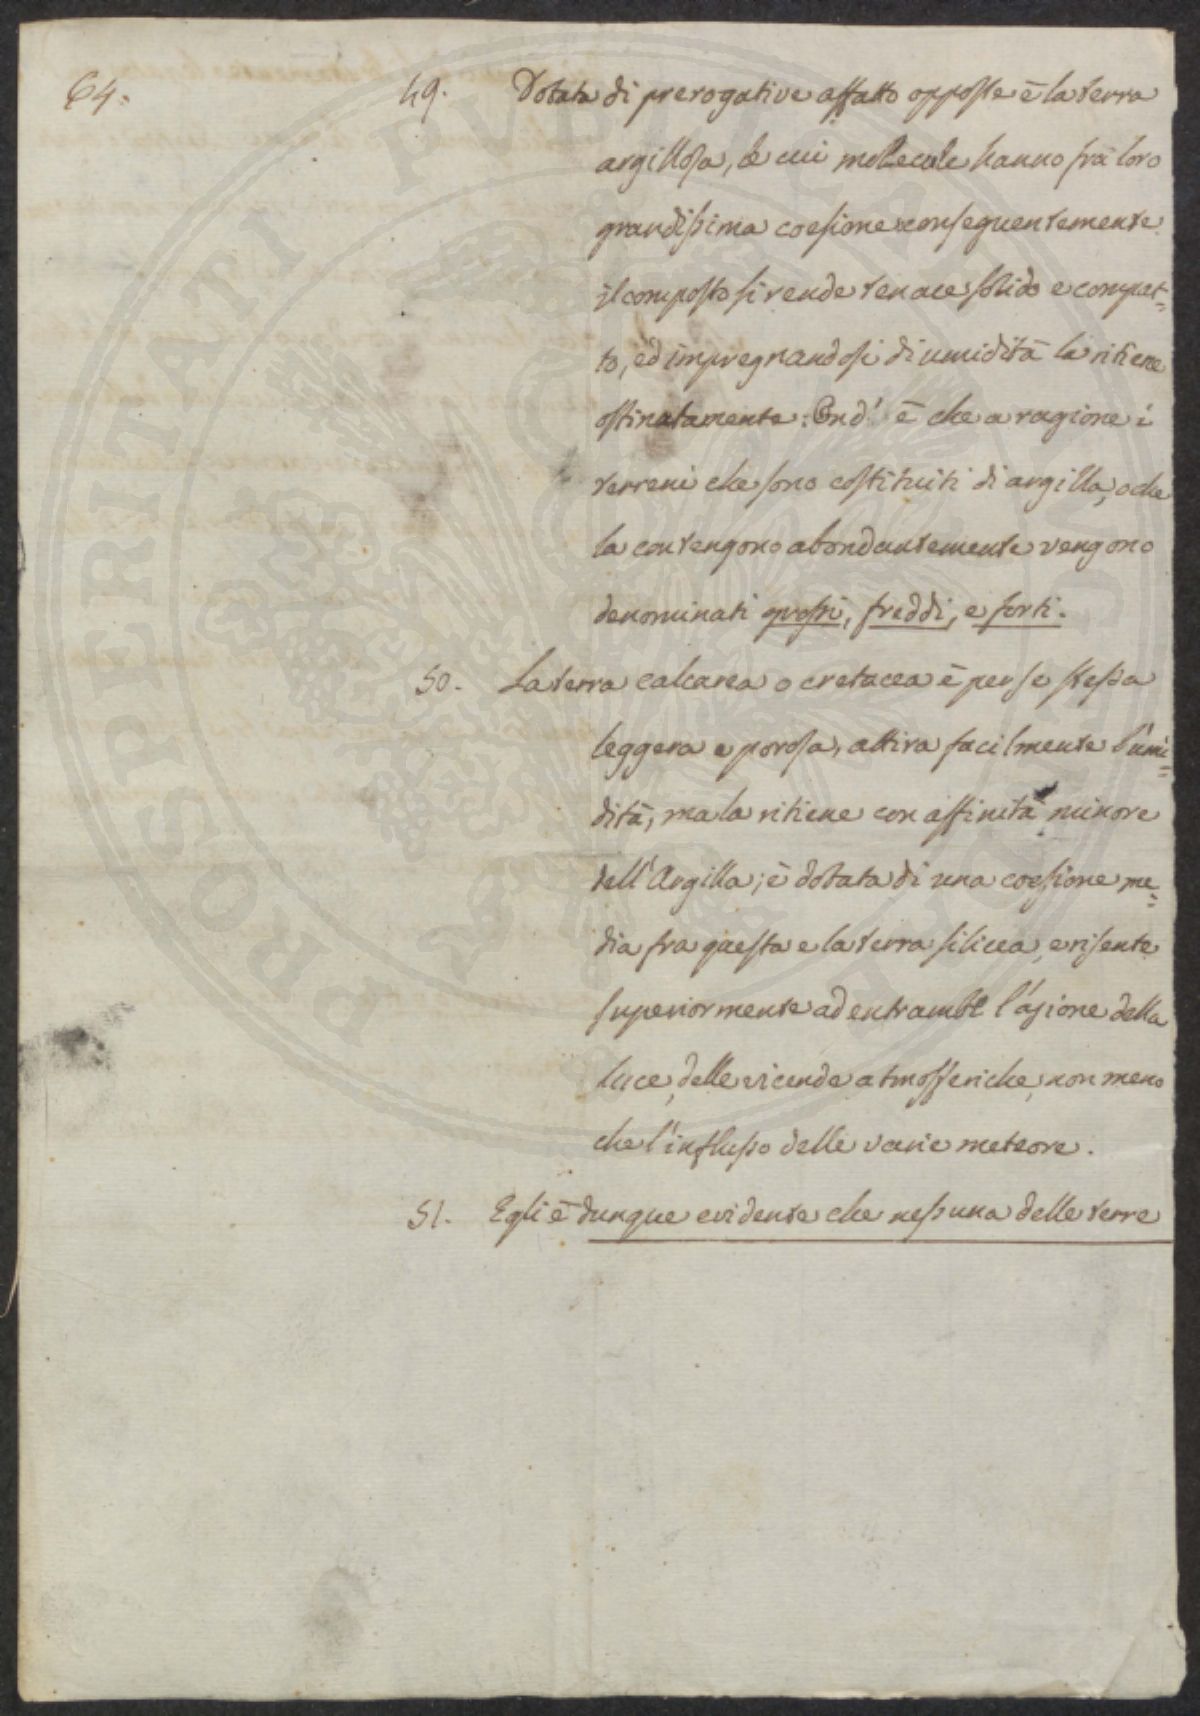 64.
49. Dotata di prerogative affatto opposte è la terra
argillosa, le cui molecole hanno frà loro
grandissima coesione conseguentemente
il composto si rende tenace solido e compat=
to, ed impregnandosi di umidità la ritiene
ostinatamente. Ond' è che a ragione i
terreni che sono costituiti di argilla, o che
la contengono abondantemente vengono
denominati grossi, freddi, e forti.
50. La terra calcarea o cretacea è per se stessa
leggera e porosa, attira facilmente l'umi=
dità, ma la ritiene con affinità minore
dell'Argilla; è dotata di una coesione me=
dia fra questa e la terra silicea, e risente
superiormente ad entrambe l'azione della
luce, delle vicende atmosferiche, non meno
che l'influsso delle varie meteore.
51. Egli è dunque evidente che nessuna delle terre
PROSPERITATI PVBLICAE AVGENDAE